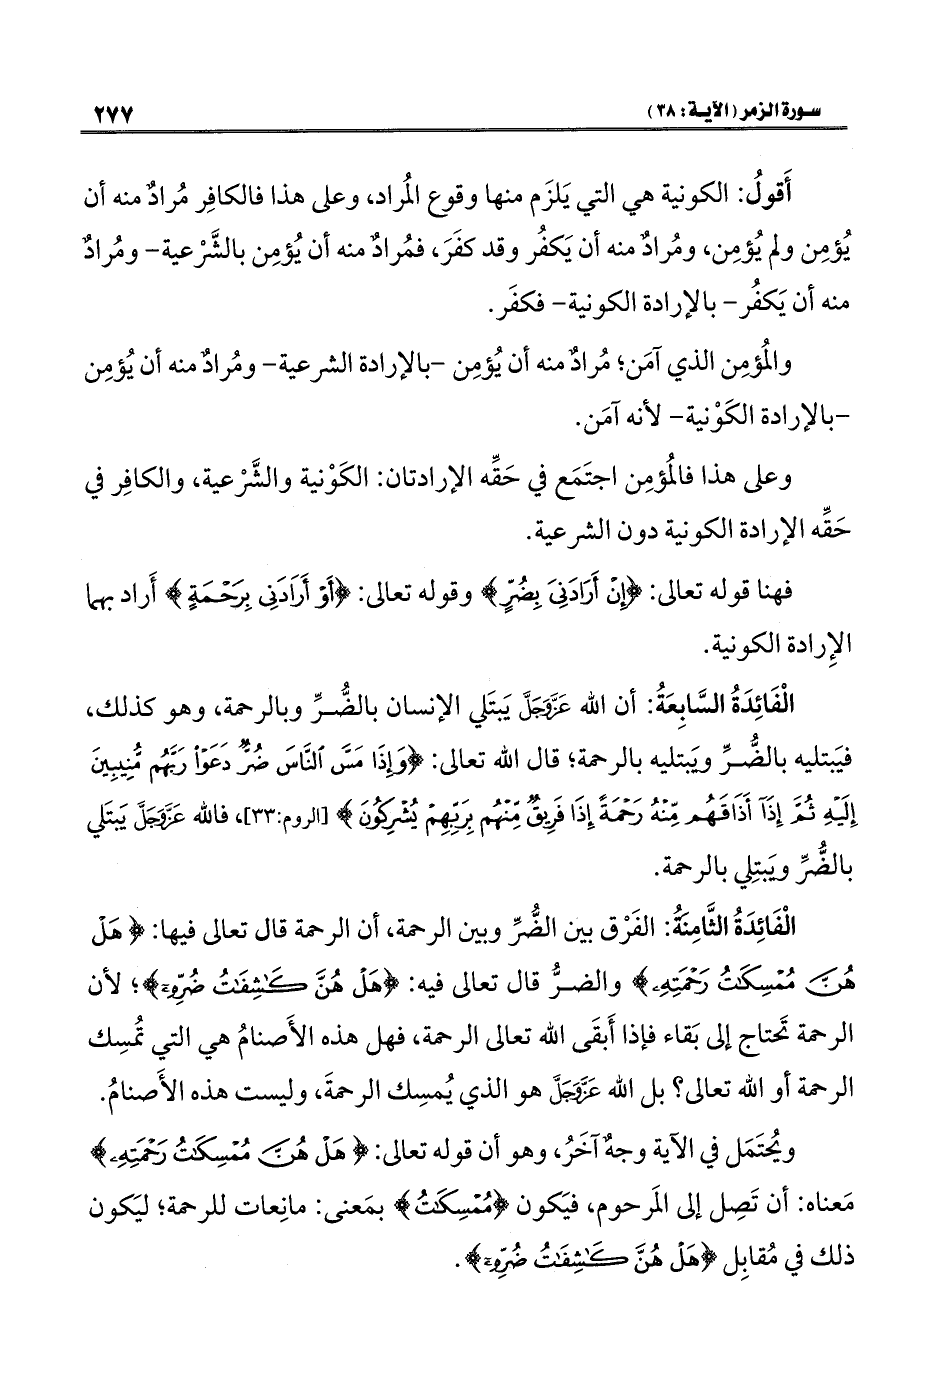 سورة الزمر (الآية: ٣٨)
٢٧٧
أَقولُ: الكونية هي التي يَلزَم منها وقوع المُراد، وعلى هذا فالكافِر مُرادٌ منه أن
يُؤمِن ولم يُؤمِن، ومُرادٌ منه أن يَكفُر وقد كفَر، فمُرادٌ منه أن يُؤمِن بالشَّرْعية- ومُرادٌ
منه أن يَكفُر- بالإرادة الكونية- فكفَر.
والمُؤمِن الذي آمَن؛ مُرادٌ منه أن يُؤمِن -بالإرادة الشرعية- ومُرادٌ منه أن يُؤمِن
-بالإرادة الكَوْنية- لأنه آمَن.
وعلى هذا فالمُؤمِن اجتَمَع في حَقِّه الإرادتان: الكَوْنية والشَّرْعية، والكافِر في
حَقِّه الإرادة الكونية دون الشرعية.
فهنا قوله تعالى: ﴿إِنْ أَرَادَنِيَ بِضُرٍّ﴾ وقوله تعالى: ﴿أَوْ أَرَادَنِى بِرَحْمَةٍ﴾ أَراد بهما
الإِرادة الكونية.
الْفَائِدَةُ السَّابِعَةُ: أن الله عَزَّوَجَلَّ يَبتَلي الإنسان بالضُّـرِّ وبالرحمة، وهو كذلك،
فيَبتليه بالضُّـرِّ ويَبتليه بالرحمة؛ قال الله تعالى: ﴿وَإِذَا مَسَّ ٱلنَّاسَ ضُرٌّ دَعَوْا۟ رَبَّهُم مُّنِيبِينَ
إِلَيْهِ ثُمَّ إِذَآ أَذَاقَهُم مِّنْهُ رَحْمَةً إِذَا فَرِيقٌ مِّنْهُم بِرَبِّهِمْ يُشْرِكُونَ﴾ [الروم:٣٣]، فالله عَزَّوَجَلَّ يَبتَلي
بالضُّرِّ ويَبتِلي بالرحمة.
الْفَائِدَةُ الثَّامِنَةُ: الفَرْق بين الضُّرِّ وبين الرحمة، أن الرحمة قال تعالى فيها: ﴿هَلْ
هُنَّ مُمْسِكَٰتُ رَحْمَتِهِۦ﴾ والضـرُّ قال تعالى فيه: ﴿هَلْ هُنَّ كَٰشِفَٰتُ ضُرِّهِۦٓ﴾؛ لأن
الرحمة تَحتاج إلى بَقاء فإذا أَبقَى الله تعالى الرحمة، فهل هذه الأَصنامُ هي التي تُمسِك
الرحمة أو الله تعالى؟ بل الله عَزَّوَجَلَّ هو الذي يُمسِك الرحمةَ، وليست هذه الأَصنامُ.
ويُحتَمَل في الآية وجهٌ آخَرُ، وهو أن قوله تعالى: ﴿هَلْ هُنَّ مُمْسِكَٰتُ رَحْمَتِهِۦ﴾
مَعناه: أن تَصِل إلى المَرحوم، فيَكون ﴿مُمْسِكَٰتُ﴾ بمَعنى: مانِعات للرحمة؛ ليَكون
ذلك في مُقابِل ﴿هَلْ هُنَّ كَٰشِفَٰتُ ضُرِّهِۦٓ﴾.